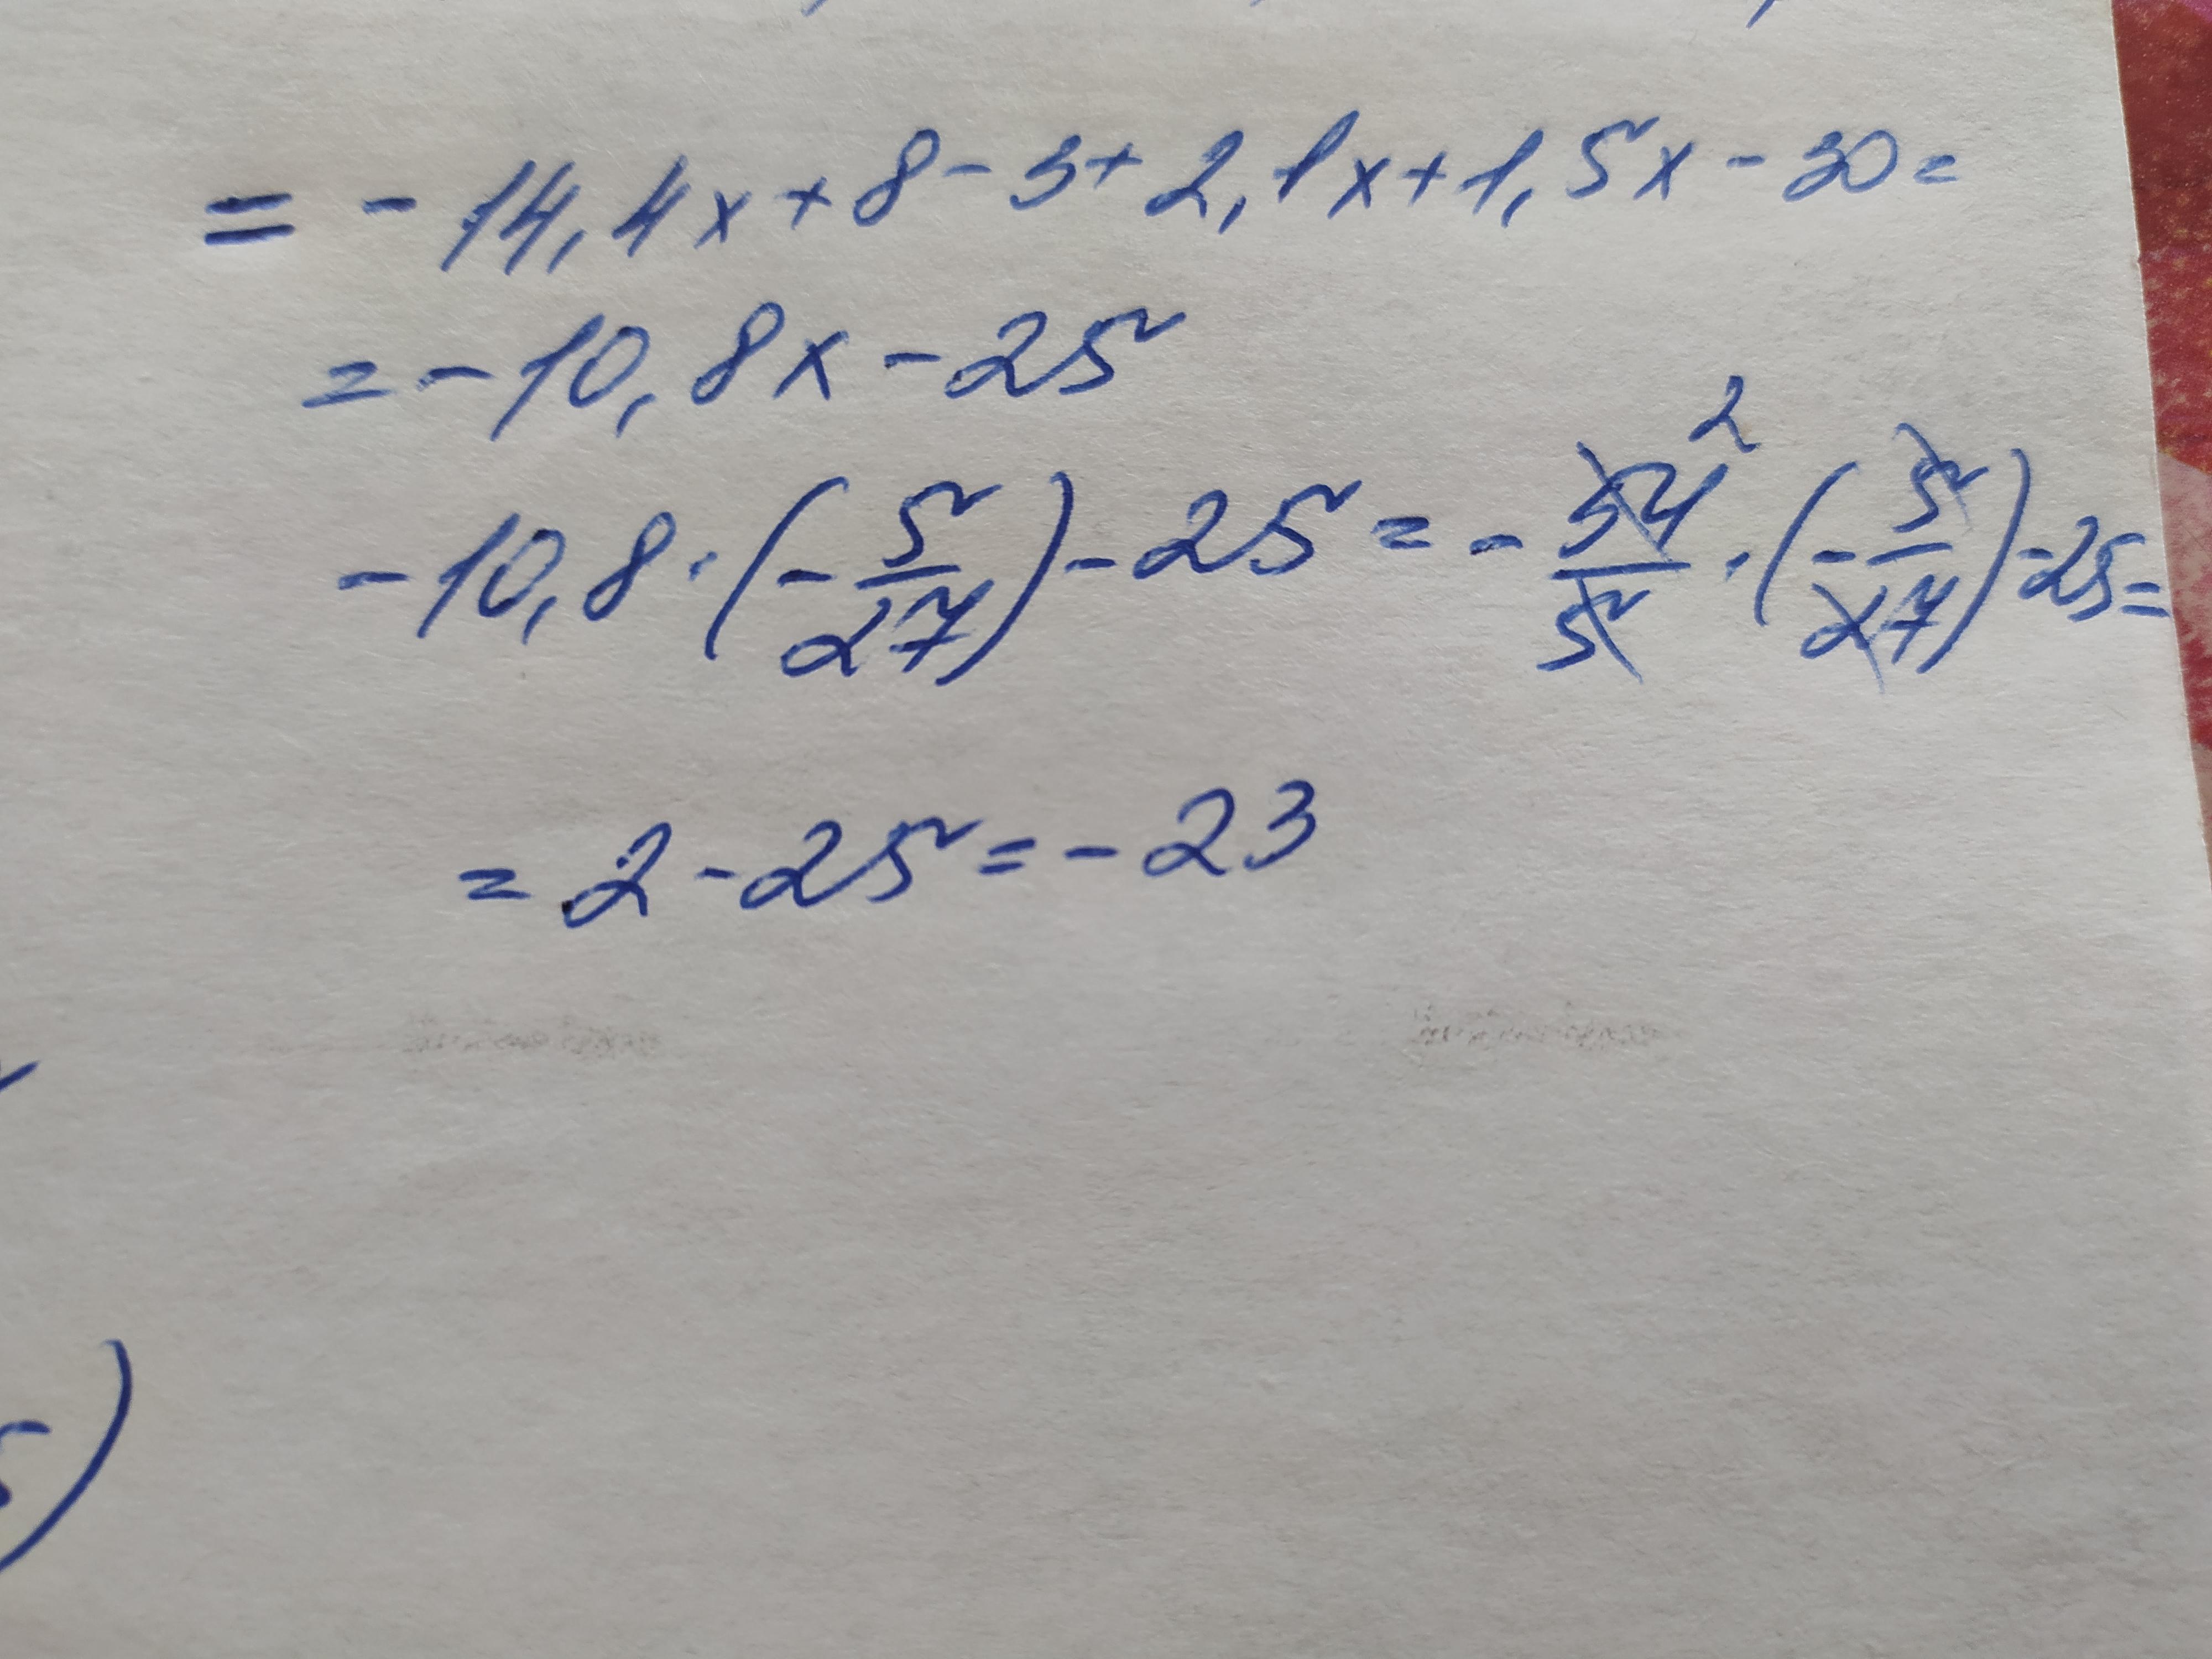 = - 14,4x + 8 - 3 + 2,1x + 1,5x - 30 =
= - 10,8x - 25
- 10,8 · (- 5/27) - 25 = - 54/5 · (- 5/27) - 25 =
2
= 2 - 25 = - 23
)